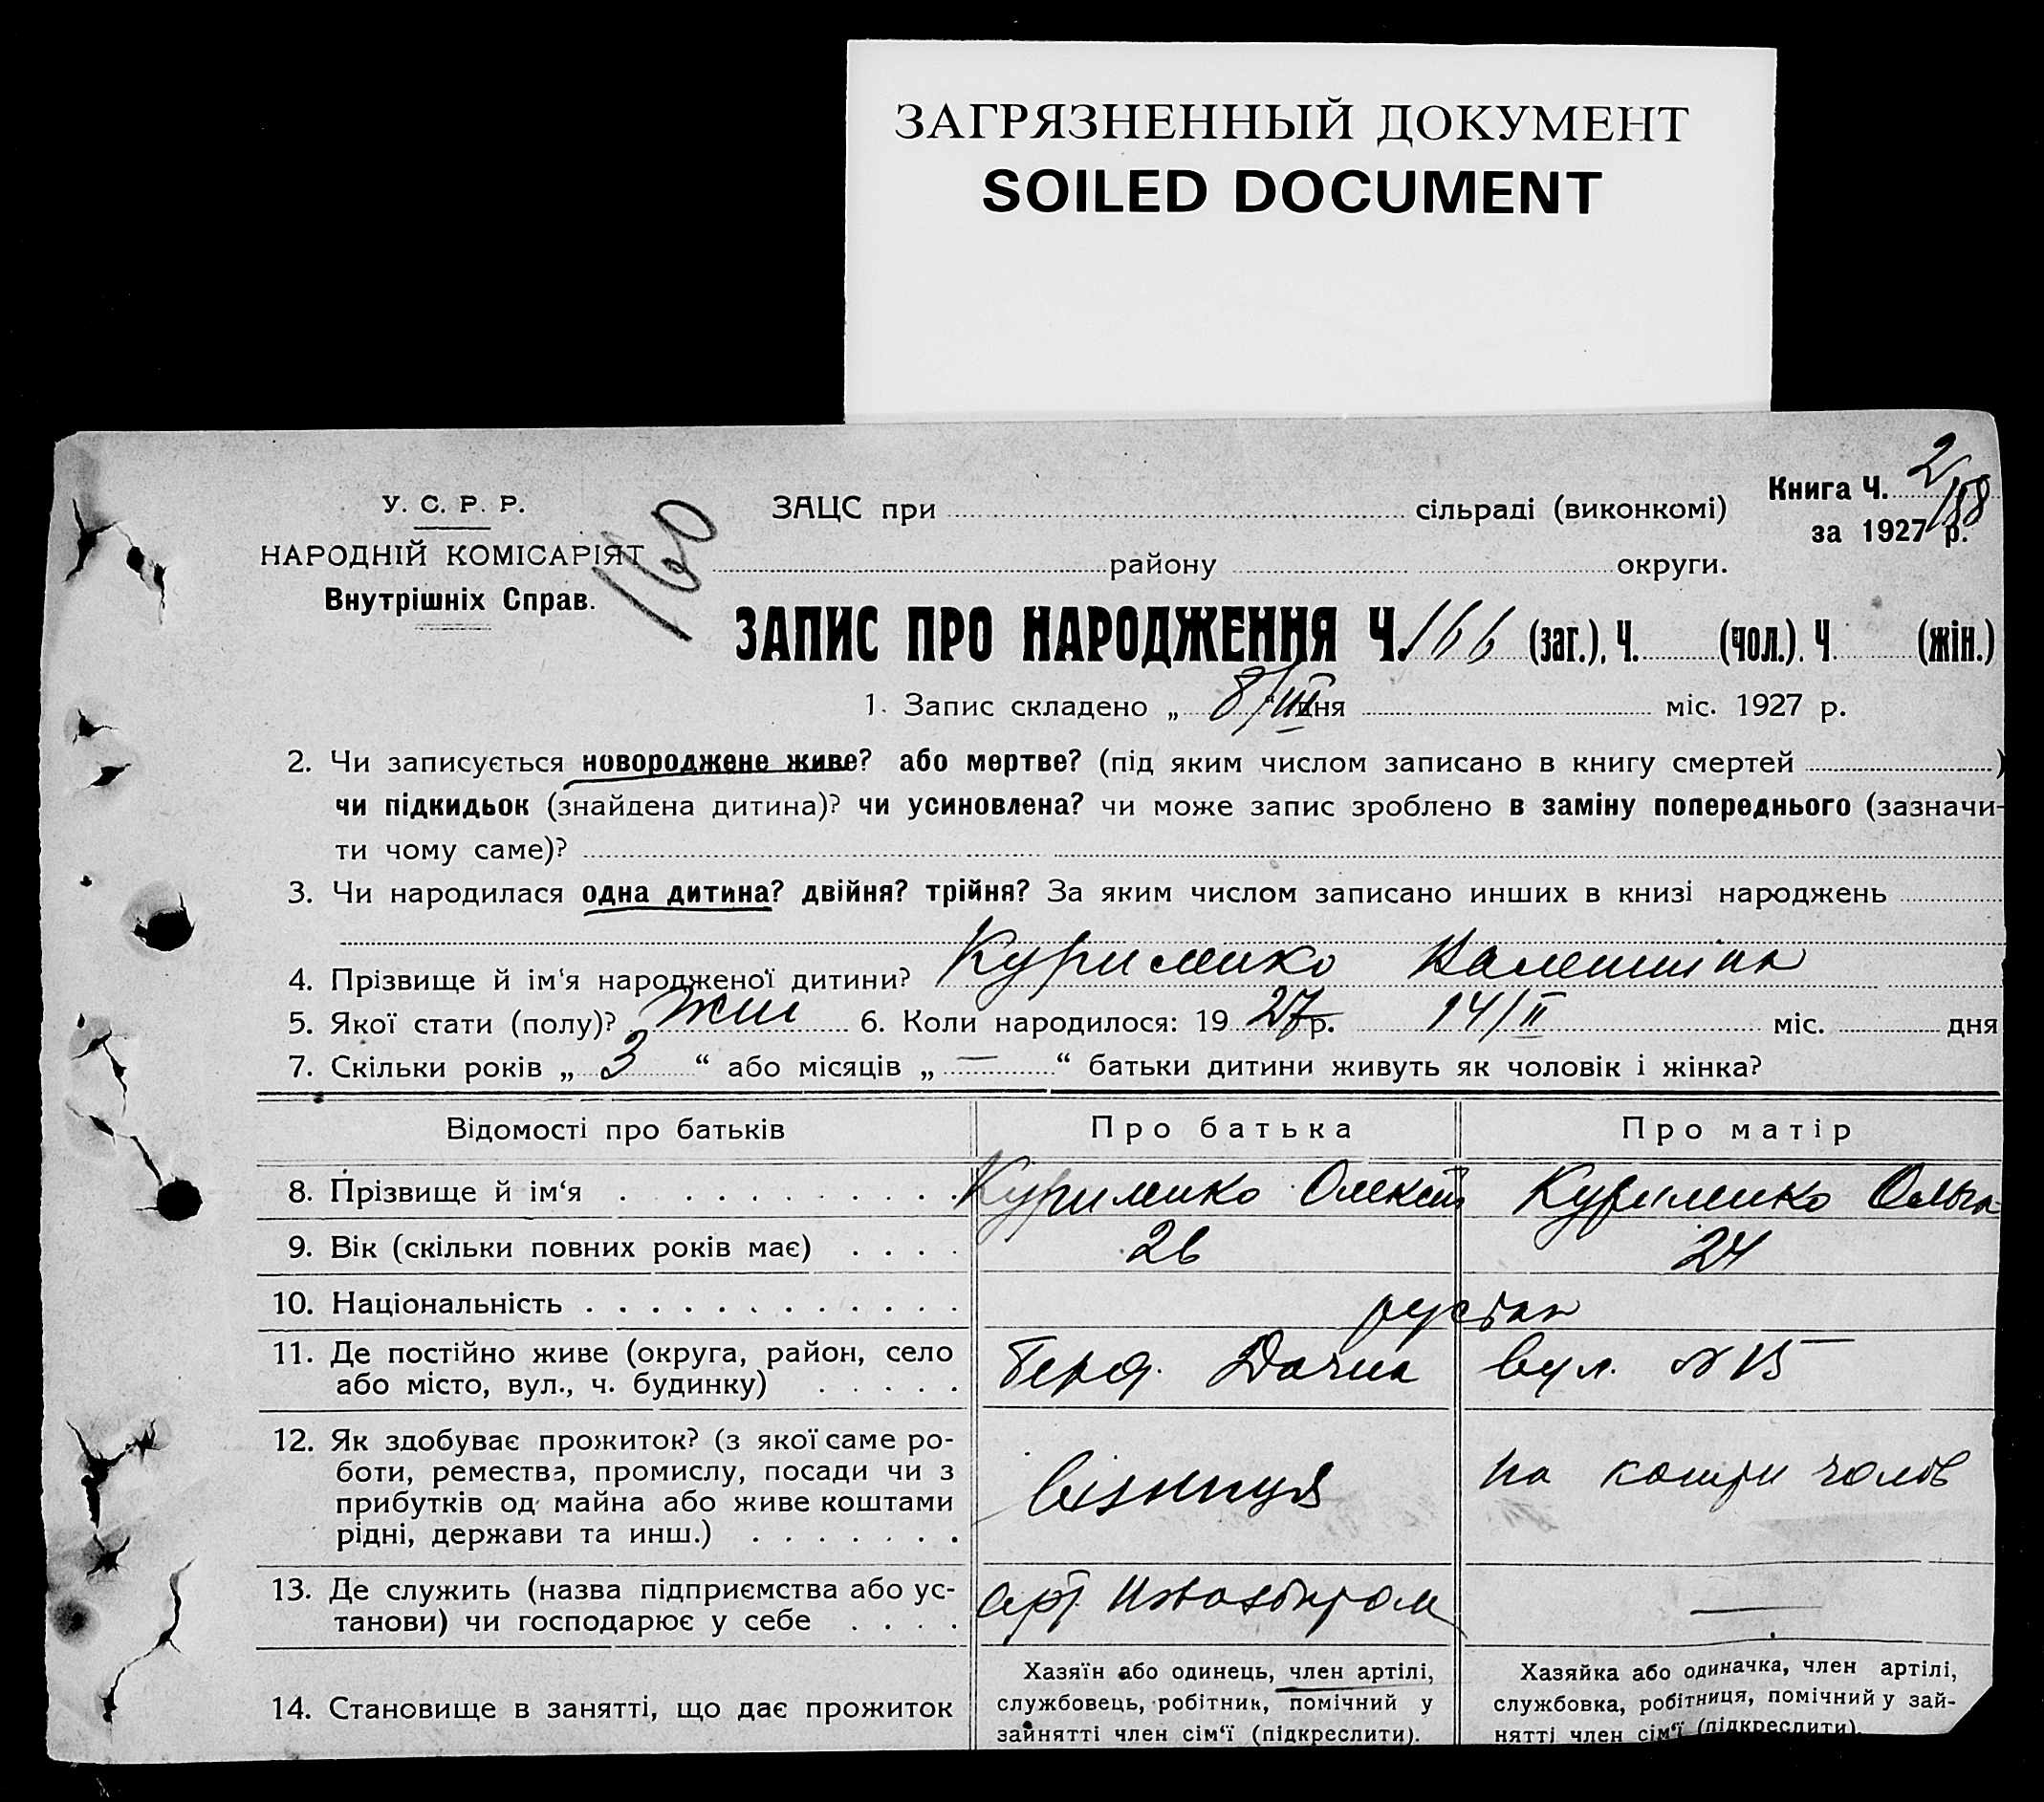 ЗАГРЯЗНЕННЫЙ ДОКУМЕНТ
SOILED DOCUMENT
Книга Ч. 2/158
за 1927 р.
У. С. Р. Р.
НАРОДНІЙ КОМІСАРІЯТ
Внутрішніх Справ.
160
ЗАЦС при сільраді (виконкомі)
району округи.
ЗАПИС ПРО НАРОДЖЕННЯ Ч. 166 (заг.), Ч. (чол.). Ч (жін.)
1. Запис складено „ 8/III “ дня міс. 1927 р.
2. Чи записується новороджене живе? або мертве? (під яким числом записано в книгу смертей )
чи підкидьок (знайдена дитина)? чи усиновлена? чи може запис зроблено в заміну попереднього (зазначи-
ти чому саме)?
3. Чи народилася одна дитина? двійня? трійня? За яким числом записано инших в книзі народжень
4. Прізвище й ім‘я народженої дитини? Курименко Валентина
5. Якої стати (полу)? жін 6. Коли народилося: 19 27 р. 14/II міс. дня
7. Скільки років „ 3 “ або місяців „ — “ батьки дитини живуть як чоловік і жінка?
Відомості про батьків Про батька Про матір
8. Прізвище й ім‘я Курименко Олексій Курименко Ольга
9. Вік (скільки повних років має) 26 24
10. Національність
11. Де постійно живе (округа, район, село
або місто, вул., ч. будинку) Берд. Дачна вул. № 15
12. Як здобуває прожиток? (з якої саме ро-
боти, ремества, промислу, посади чи з
прибутків од майна або живе коштами
рідні, держави та инш.) візниця на кошти чолов
13. Де служить (назва підприємства або ус-
танови) чи господарює у себе арт —
14. Становище в занятті, що дає прожиток
Хазяїн або одинець, член артілі,
службовець, робітник, помічний у
зайнятті член сім‘ї (підкреслити).
Хазяйка або одиначка, член артілі,
службовка, робітниця, помічний у зай-
нятті член сім‘ї (підкреслити).